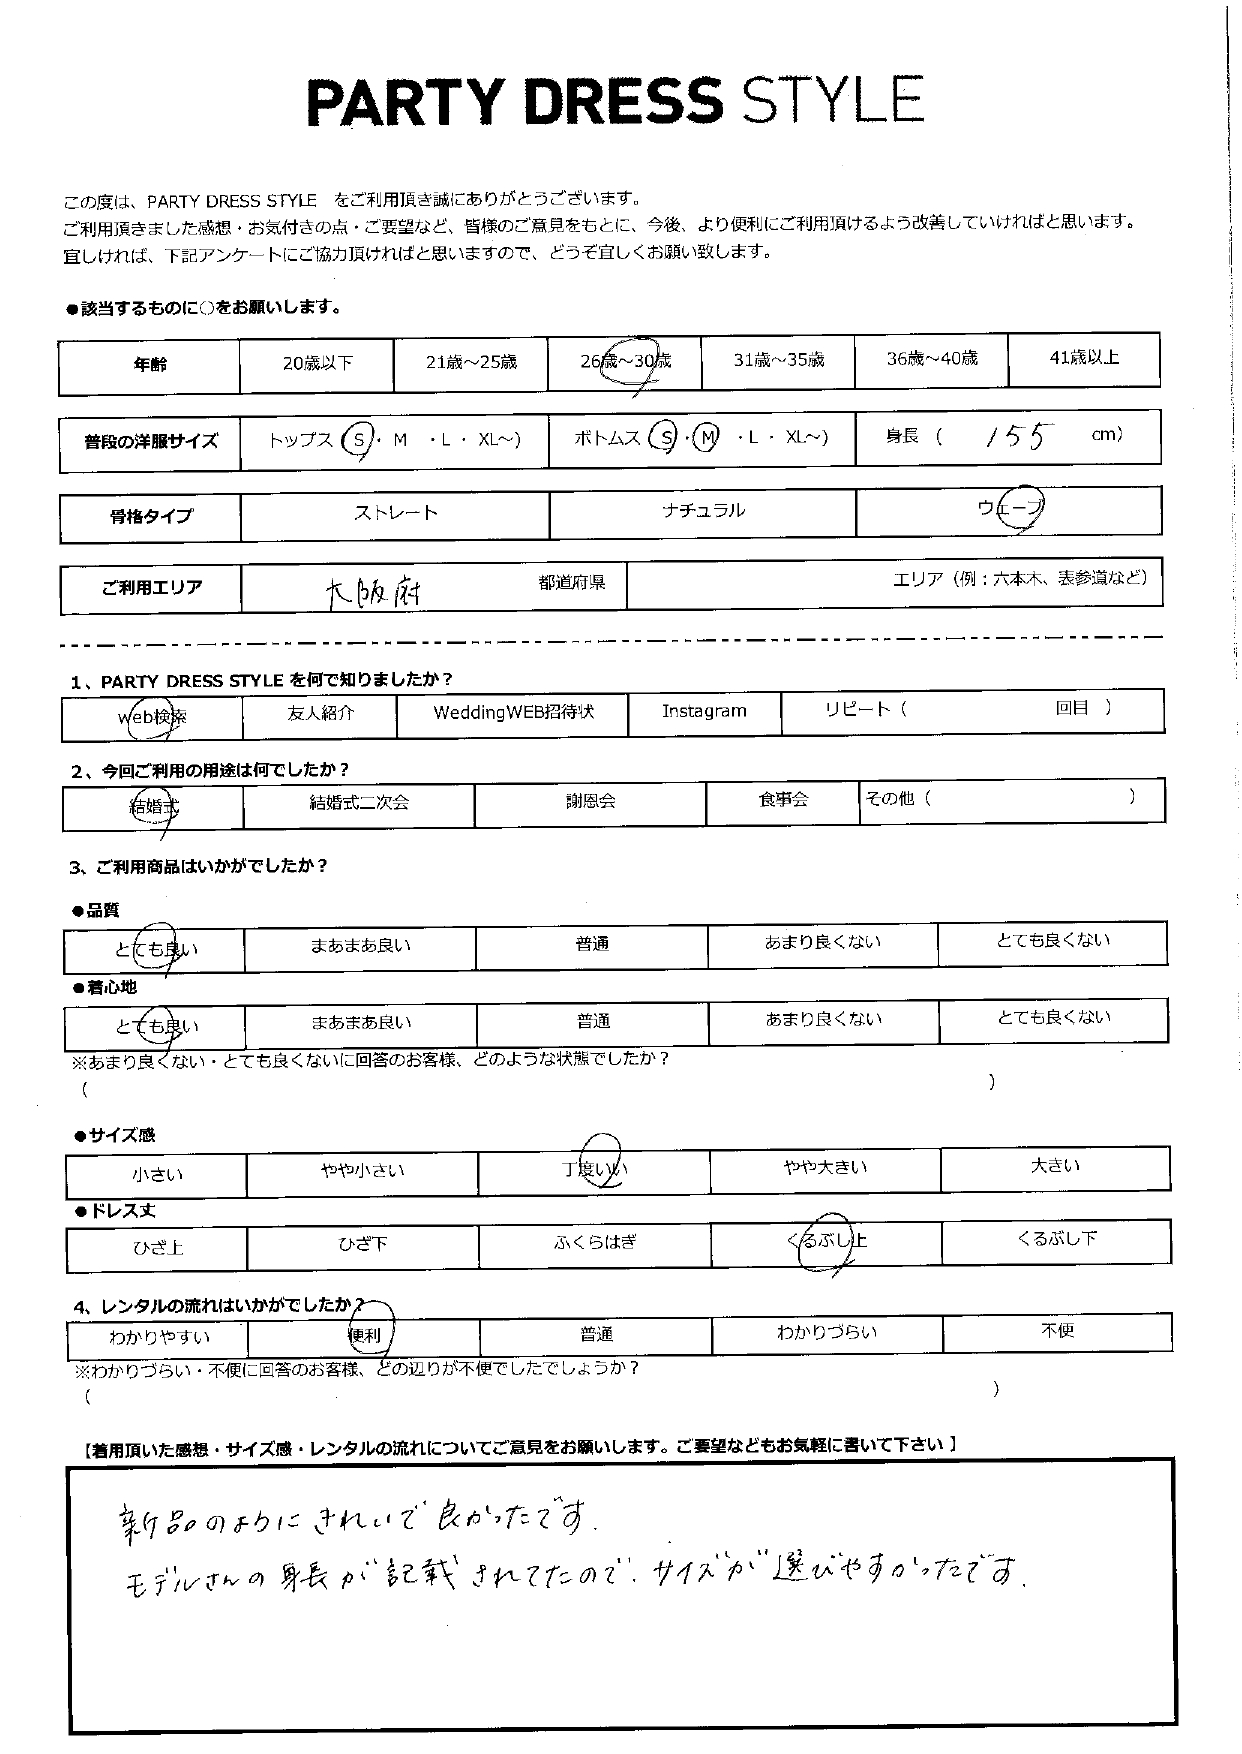 PARTY DRESS STYLE
この度は、PARTY DRESS STYLE をご利用頂き誠にありがとうございます。
ご利用頂きました感想・お気付きの点・ご要望など、皆様のご意見をもとに、今後、より便利にご利用頂けるよう改善していければと思います。
宜しければ、下記アンケートにご協力頂ければと思いますので、どうぞ宜しくお願い致します。
●該当するものに○をお願いします。
年齢 20歳以下 21歳～25歳 26歳～30歳 31歳～35歳 36歳～40歳 41歳以上
普段の洋服サイズ トップス（S・M ・L・ XL～） ボトムス（S・M ・L・ XL～） 身長（ 155 cm）
骨格タイプ ストレート ナチュラル ウェーブ
ご利用エリア 大阪府 都道府県 エリア（例：六本木、表参道など）
1、PARTY DRESS STYLE を何で知りましたか？
web検索 友人紹介 WeddingWEB招待状 Instagram リピート（ 回目 ）
2、今回ご利用の用途は何でしたか？
結婚式 結婚式二次会 謝恩会 食事会 その他（ ）
3、ご利用商品はいかがでしたか？
●品質
とても良い まあまあ良い 普通 あまり良くない とても良くない
●着心地
とても良い まあまあ良い 普通 あまり良くない とても良くない
※あまり良くない・とても良くないに回答のお客様、どのような状態でしたか？
（ ）
●サイズ感
小さい やや小さい 丁度いい やや大きい 大きい
●ドレス丈
ひざ上 ひざ下 ふくらはぎ くるぶし上 くるぶし下
4、レンタルの流れはいかがでしたか？
わかりやすい 便利 普通 わかりづらい 不便
※わかりづらい・不便に回答のお客様、どの辺りが不便でしたでしょうか？
（ ）
【着用頂いた感想・サイズ感・レンタルの流れについてご意見をお願いします。ご要望などもお気軽に書いて下さい】
新品のようにきれいで良かったです.
モデルさんの身長が記載されてたので、サイズが選びやすかったです.